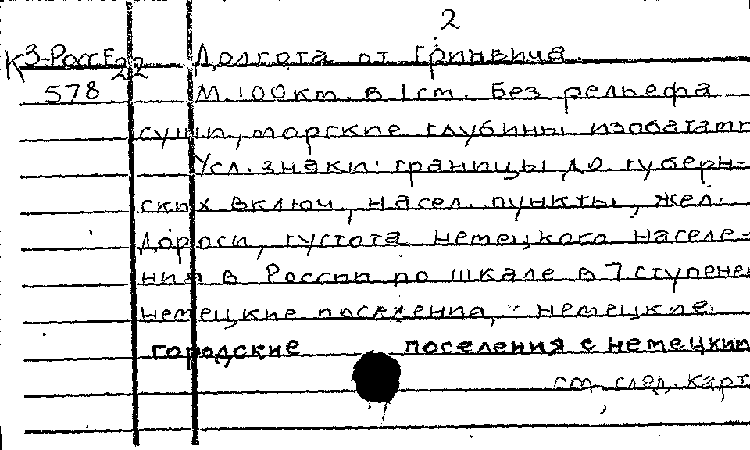 2
К3-РоссЕ 22 Долгота от Гринвича
578 М. 100км. в 1см. без рельефа
суши, морские глубины изобатами
Усл. знаки: границы до губерн-
ских включ., насел. пункты, жел.
дороги, густота немецкого населе-
ния в России по шкале в 7 ступеней
немецкие поселения, немецкие
городские поселения с немецким
см. след. карт